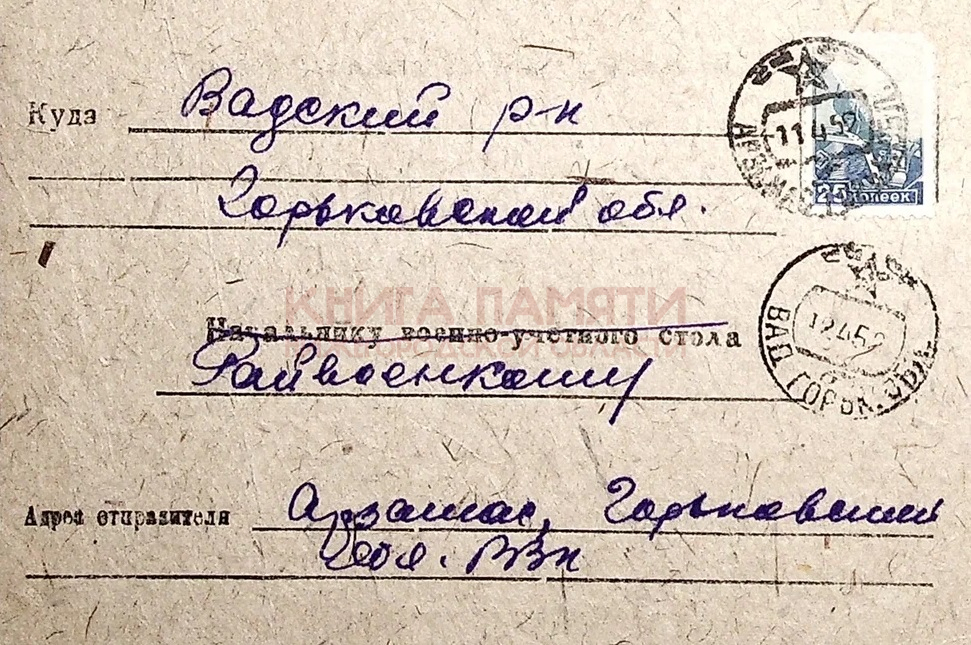 Куда Вадский р-н
Горьковской обл.
КНИГА ПАМЯТИ
Начальнику военно-учетного стола
Райвоенкому
Адрес отправителя Арзамас, Горьковский
обл. РВк
25 копеек
11 4 52
12 4 52
ВАД ГОРЬК.